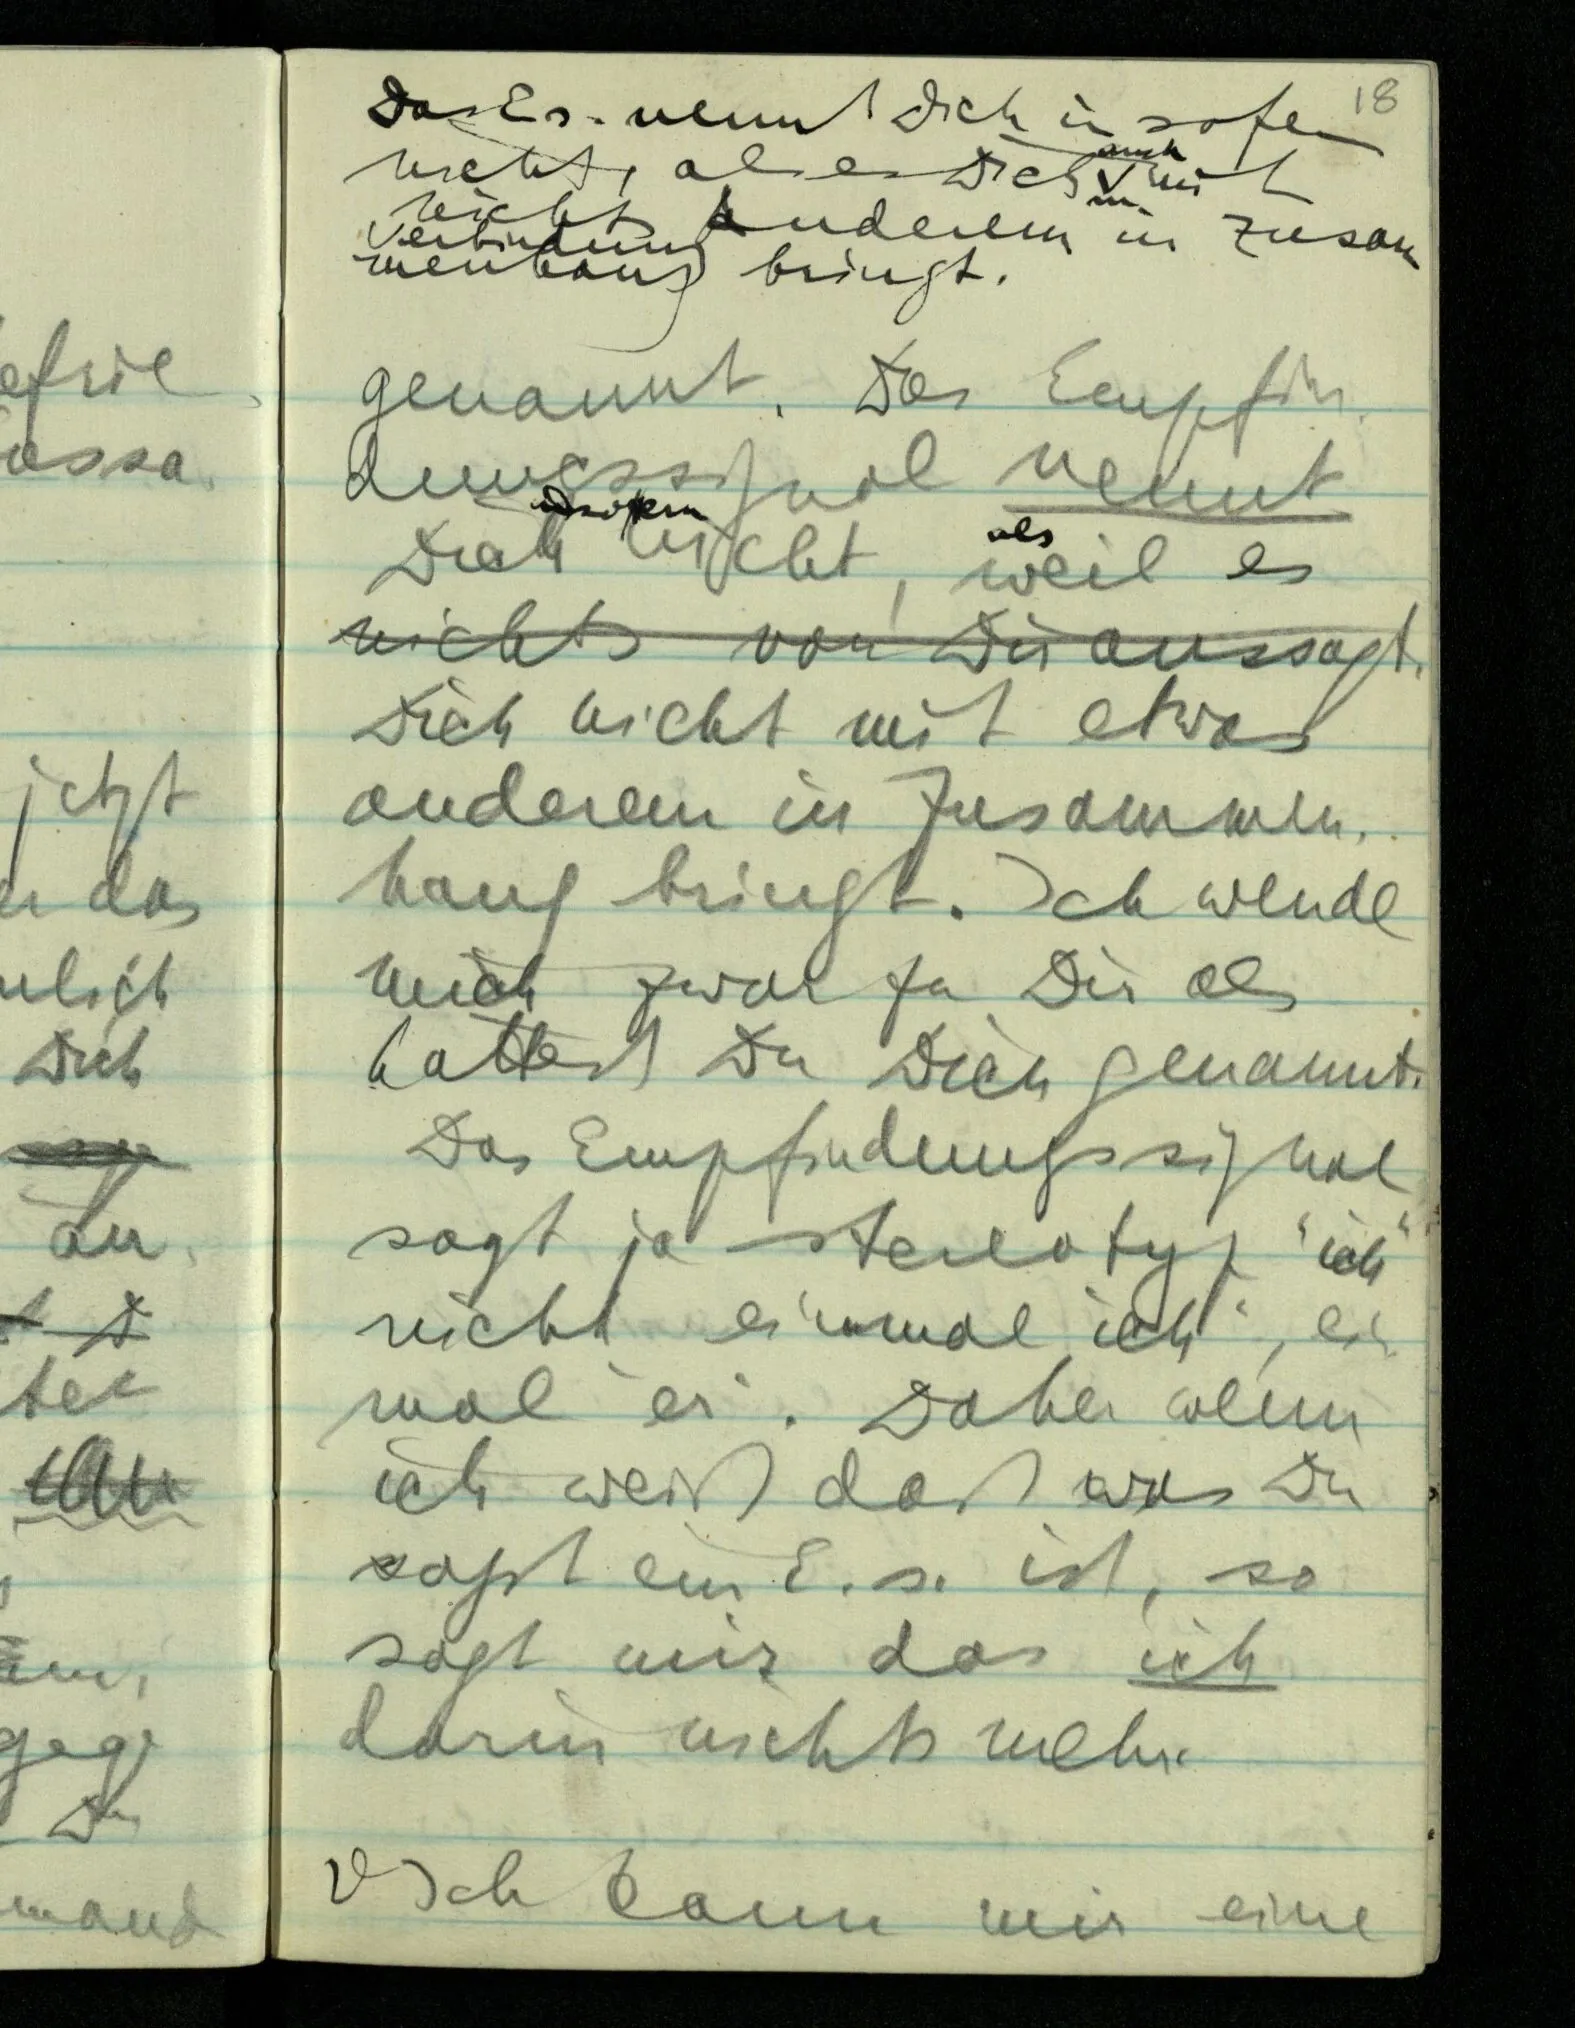 18
Das E.s. nennt Dich insofern
nicht, als es Dich auch mit
nichts anderem in Zusam
Verbindung
menhang bringt.
genannt. Das Empfin-
dungssignal nennt
insofern als
Dich nicht, weil es
nichts von Dir aussagt.
Dich nicht mit etwas
anderem in Zusammen-
hang bringt. Ich wende
mich zwar zu Dir als
hattest Du Dich genannt.
Das Empfindungssignal
sagt ja stereotyp "ich"
nicht einmal "ich", ein
mal "er". Daher wenn
ich weiß daß was Du
sagst ein E.s. ist, so
sagt mir das ich
darin nichts mehr.
V Ich kann mir eine
jetzt
das
Dich
an
D
Du